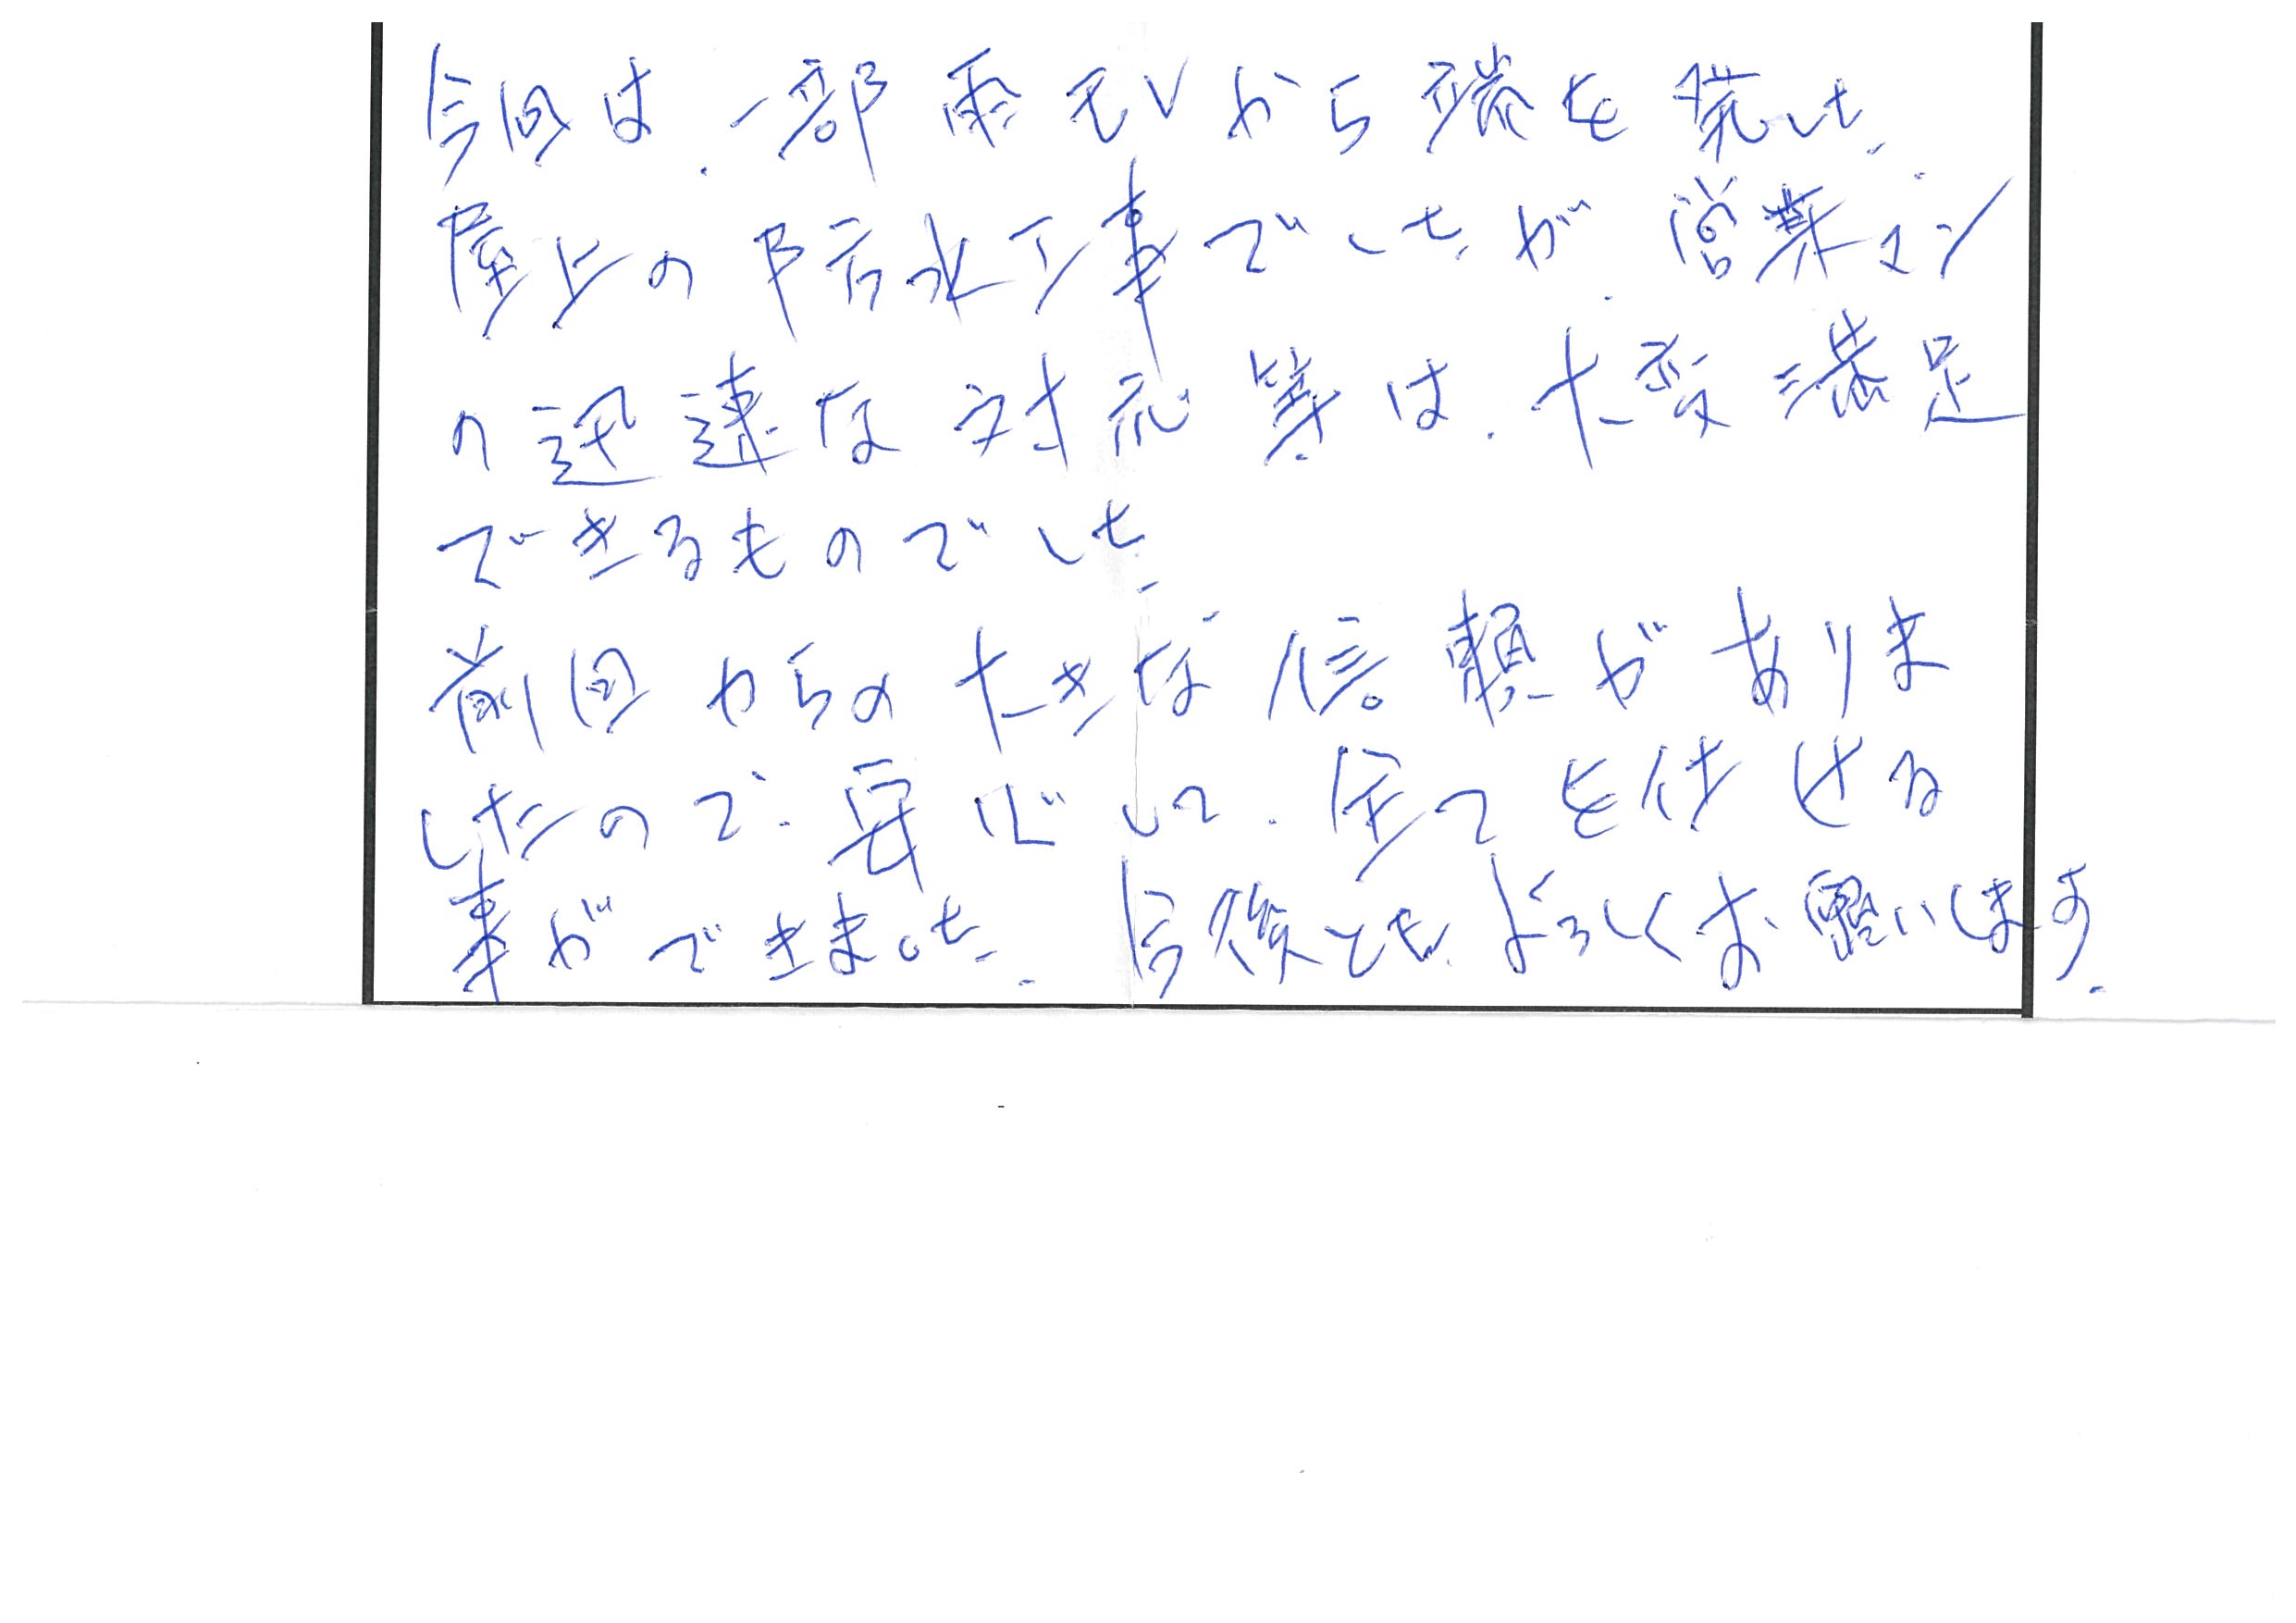 今回は、一部雨もりから端を発した、
屋上の防水工事でしたが、営業マン
の迅速な対応等は、大変満足
できるものでした。
前回からの大きな信頼がありま
したので、安心して、全てを任せる
事ができました。今後ともよろしくお願いします。